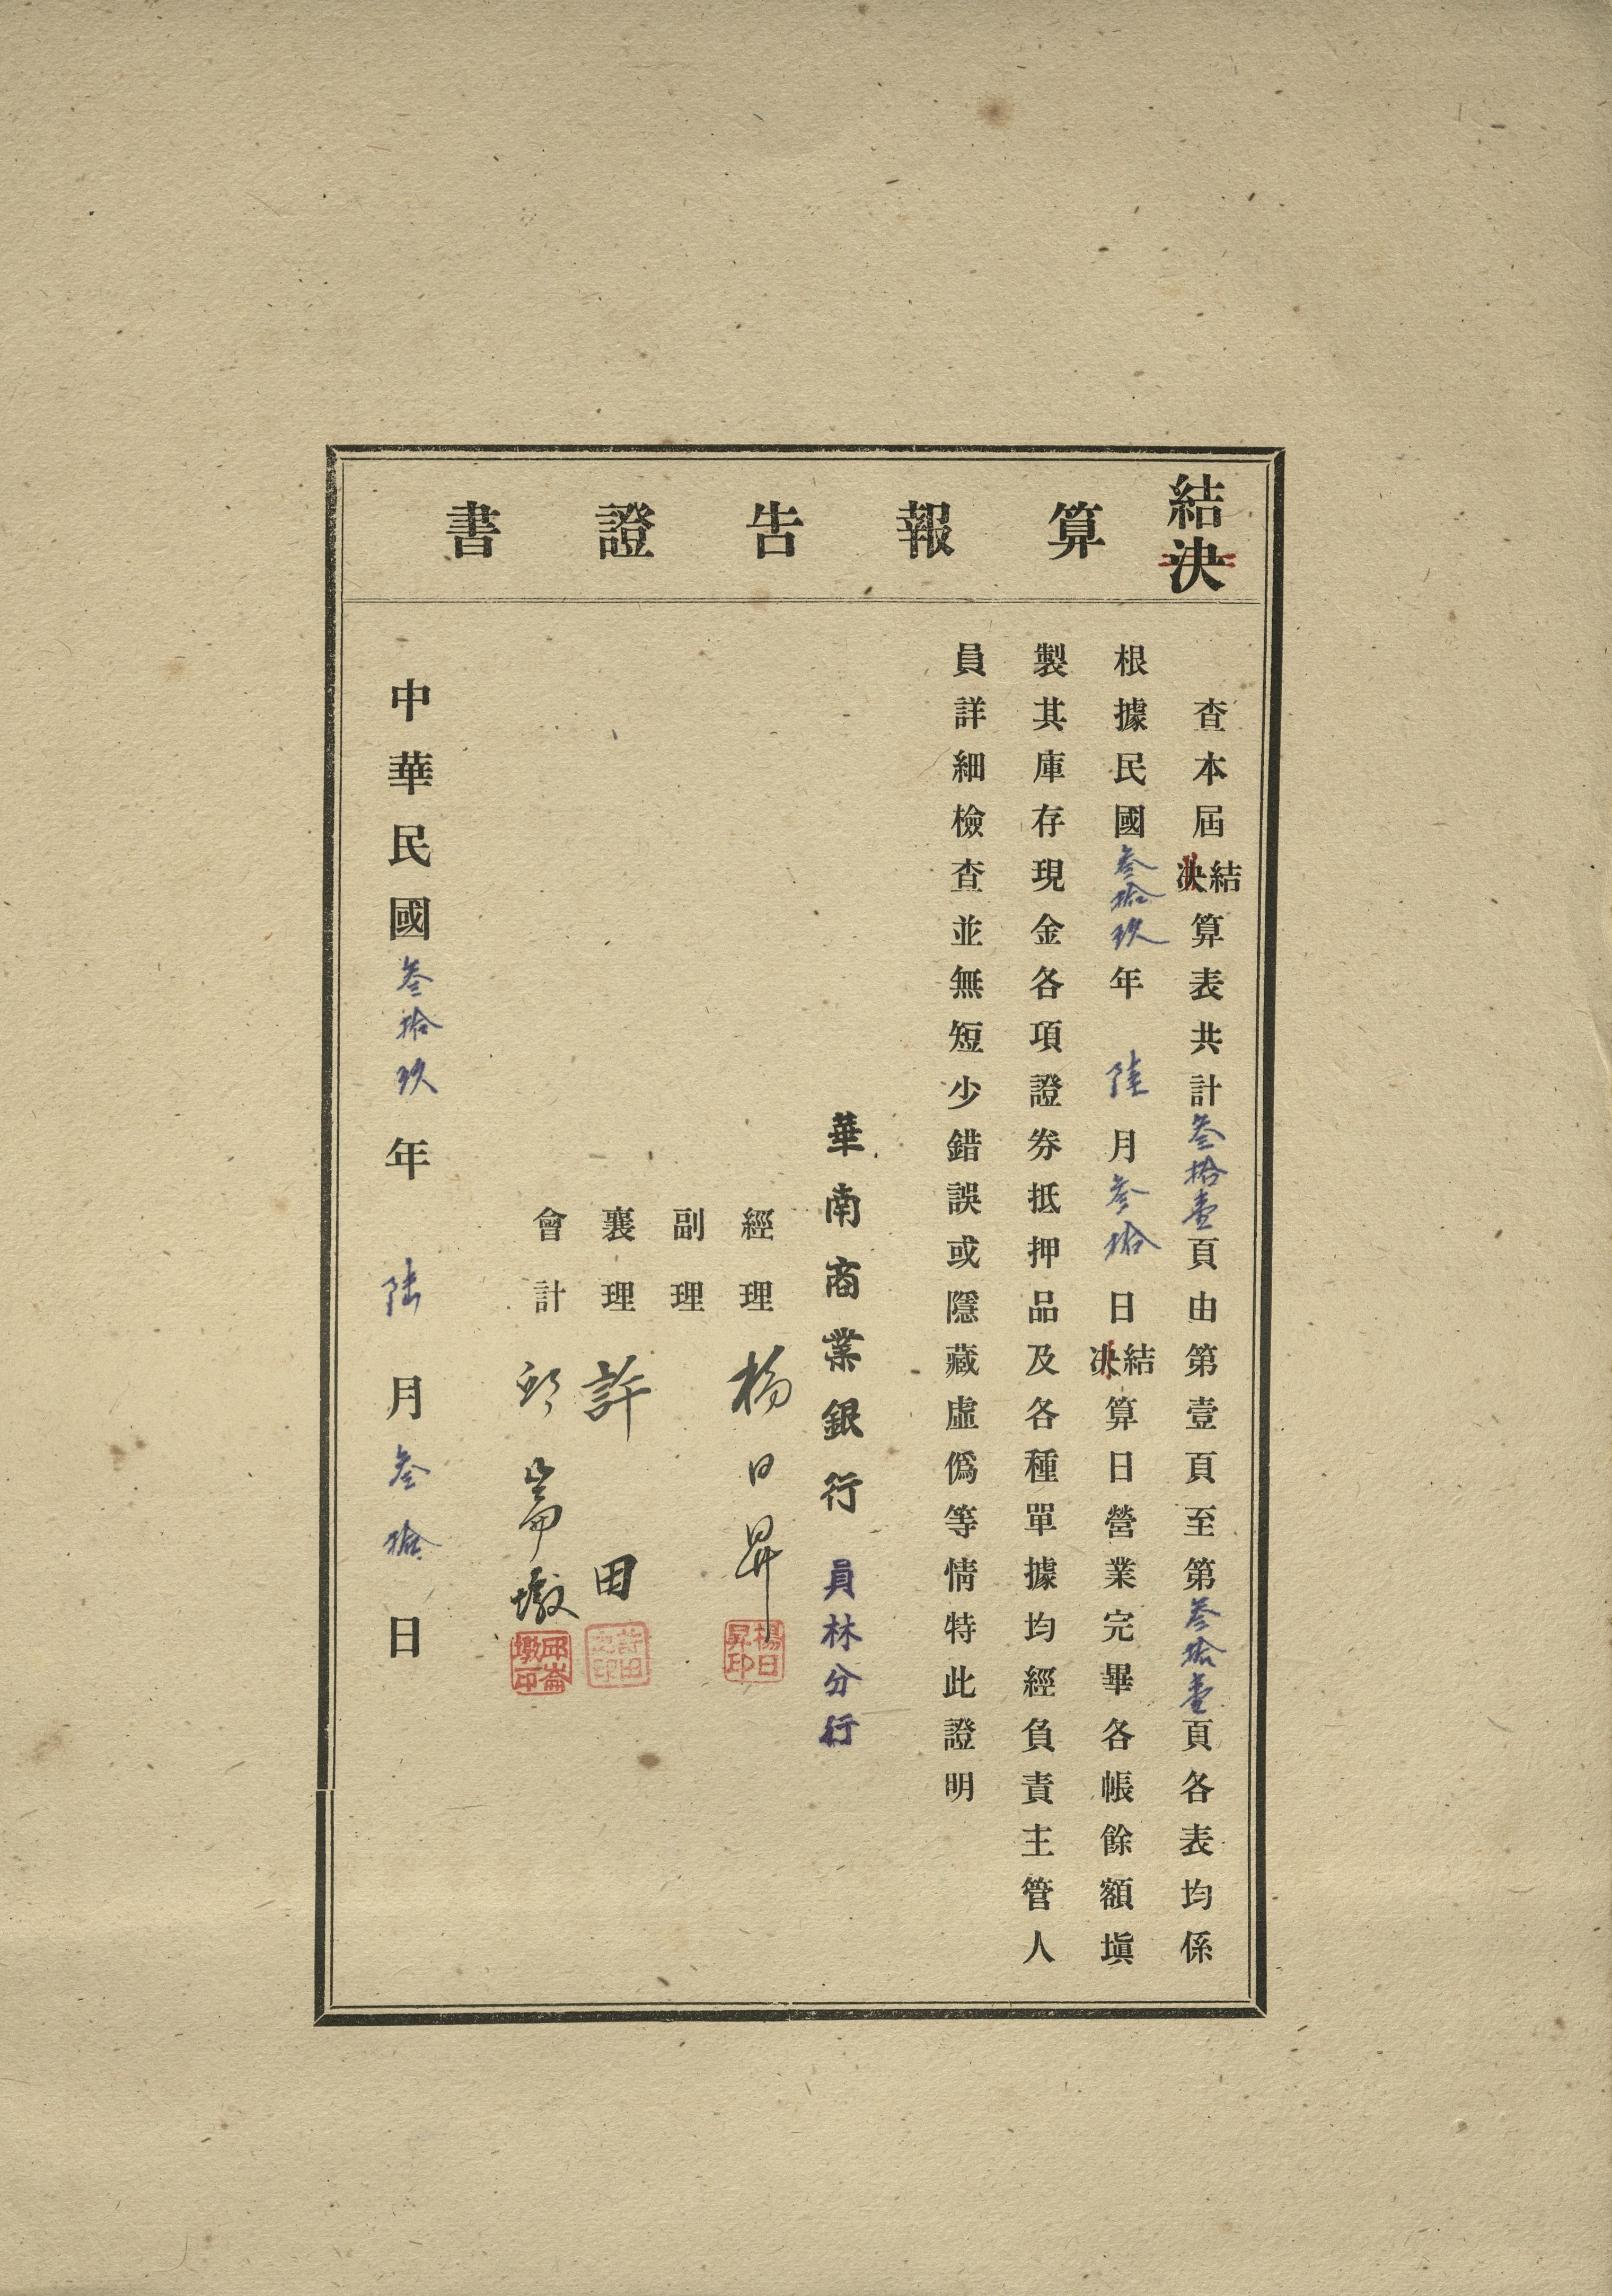 結決算報告證書
查本屆結決算表共計叁拾壹頁由第壹頁至第叁拾壹頁各表均係
根據民國叁拾玖年陸月叁拾日結決算日營業完畢各帳餘額塡
製其庫存現金各項證券抵押品及各種單據均經負責主管人
員詳細檢查並無短少錯誤或隱藏虛僞等情特此證明
華南商業銀行員林分行
經理楊日昇
楊日昇印
副理
襄理許田
許田之印
會計邱崙墩
邱崙墩印
中華民國叁拾玖年陸月叁拾日